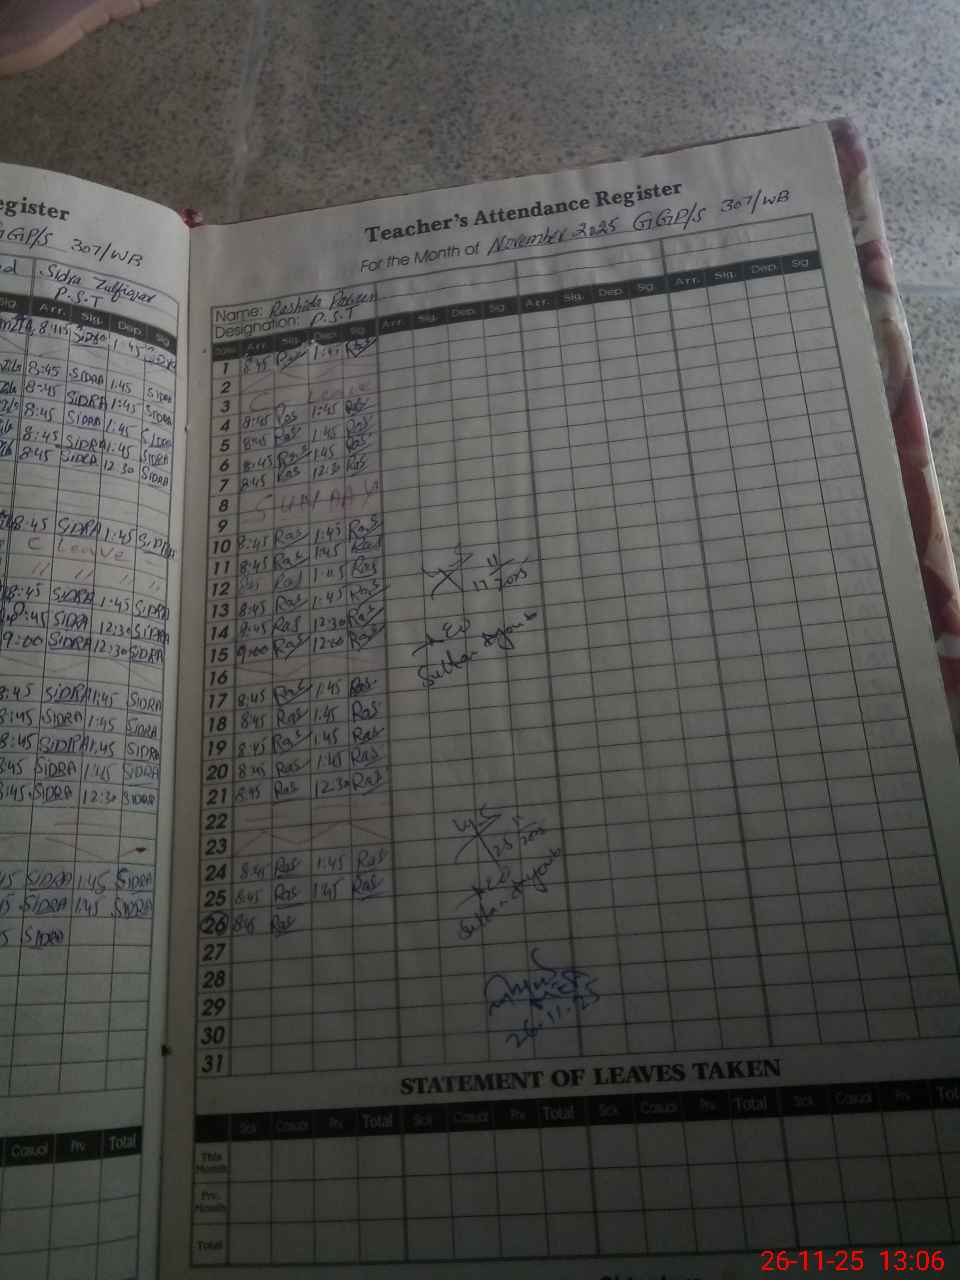 egister
GGP/S 307/WB
Sidra Zulfiqar
P.S.T
Sig. Arr. Sig. Dep. Sig
8:45 SIDRA 1:45 SIDRA
8:45 SIDRA 1:45 SIDRA
8:45 SIDRA 1:45 SIDRA
8:45 SIDRA 1:45 SIDRA
8:45 SIDRA 1:45 SIDRA
8:45 SIDRA 12:30 SIDRA
8:45 SIDRA 1:45 SIDRA
C Leave
" " " "
8:45 SIDRA 1:45 SIDRA
8:45 SIDRA 12:30 SIDRA
9:00 SIDRA 12:30 SIDRA
8:45 SIDRA 1:45 SIDRA
8:45 SIDRA 1:45 SIDRA
8:45 SIDRA 1:45 SIDRA
8:45 SIDRA 1:45 SIDRA
8:45 SIDRA 12:30 SIDRA
45 SIDRA 1:45 SIDRA
45 SIDRA 1:45 SIDRA
5 SIDRA
Casual Prv. Total
Teacher's Attendance Register
For the Month of November 2025 GGP/S 307/WB
Name: Rashida Parveen
Designation: P.S.T
Date Arr. Sig. Dep. Sig Arr. Sig. Dep. Sig Arr. Sig. Dep. Sig Arr. Sig. Dep. Sig
1 8:45 Ras 1:45 Ras
2
3 C Leave
4 8:45 Ras 1:45 Ras
5 8:45 Ras 1:45 Ras
6 8:45 Ras 1:45 Ras
7 8:45 Ras 12:30 Ras
8
9
10 8:45 Ras 1:45 Ras
11 8:45 Ras 1:45 Ras
12 Ras 1:45 Ras
13 8:45 Ras 1:45 Ras
14 8:45 Ras 12:30 Ras
15 9:00 Ras 12:00 Ras
16
17 8:45 Ras 1:45 Ras
18 8:45 Ras 1:45 Ras
19 8:45 Ras 1:45 Ras
20 8:45 Ras 1:45 Ras
21 8:45 Ras 12:30 Ras
22
23
24 8:45 Ras 1:45 Ras
25 8:45 Ras 1:45 Ras
26 8:45 Ras
27
28
29
30
31
11
17 2025
AEO
Sultan Ayoub
11
25 2025
AEO
Sultan Ayoub
26.11.25
STATEMENT OF LEAVES TAKEN
Sick Casual Prv. Total Sick Casual Prv. Total Sick Casual Prv. Total Sick Casual Prv. Tot
This Month
Prv. Month
Total
26-11-25 13:06